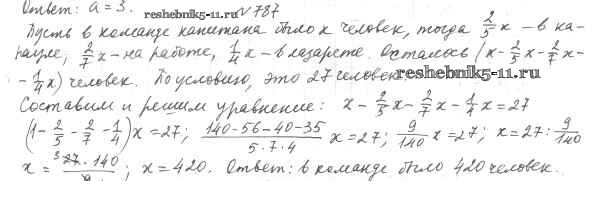 Ответ: a = 3. reshebnik5-11.ru №787
Пусть в команде капитана было x человек, тогда 2/5 x – в ка-
рауле, 2/7 x – на работе, 1/4 x – в лазарете. Осталось (x - 2/5 x - 2/7 x -
- 1/4 x) человек. По условию, это 27 человек reshebnik5-11.ru
Составим и решим уравнение: x - 2/5 x - 2/7 x - 1/4 x = 27
(1 - 2/5 - 2/7 - 1/4) x = 27; (140-56-40-35)/(5·7·4) x = 27; 9/140 x = 27; x = 27 : 9/140
x = ³27·140/9; x = 420. Ответ: в команде было 420 человек.